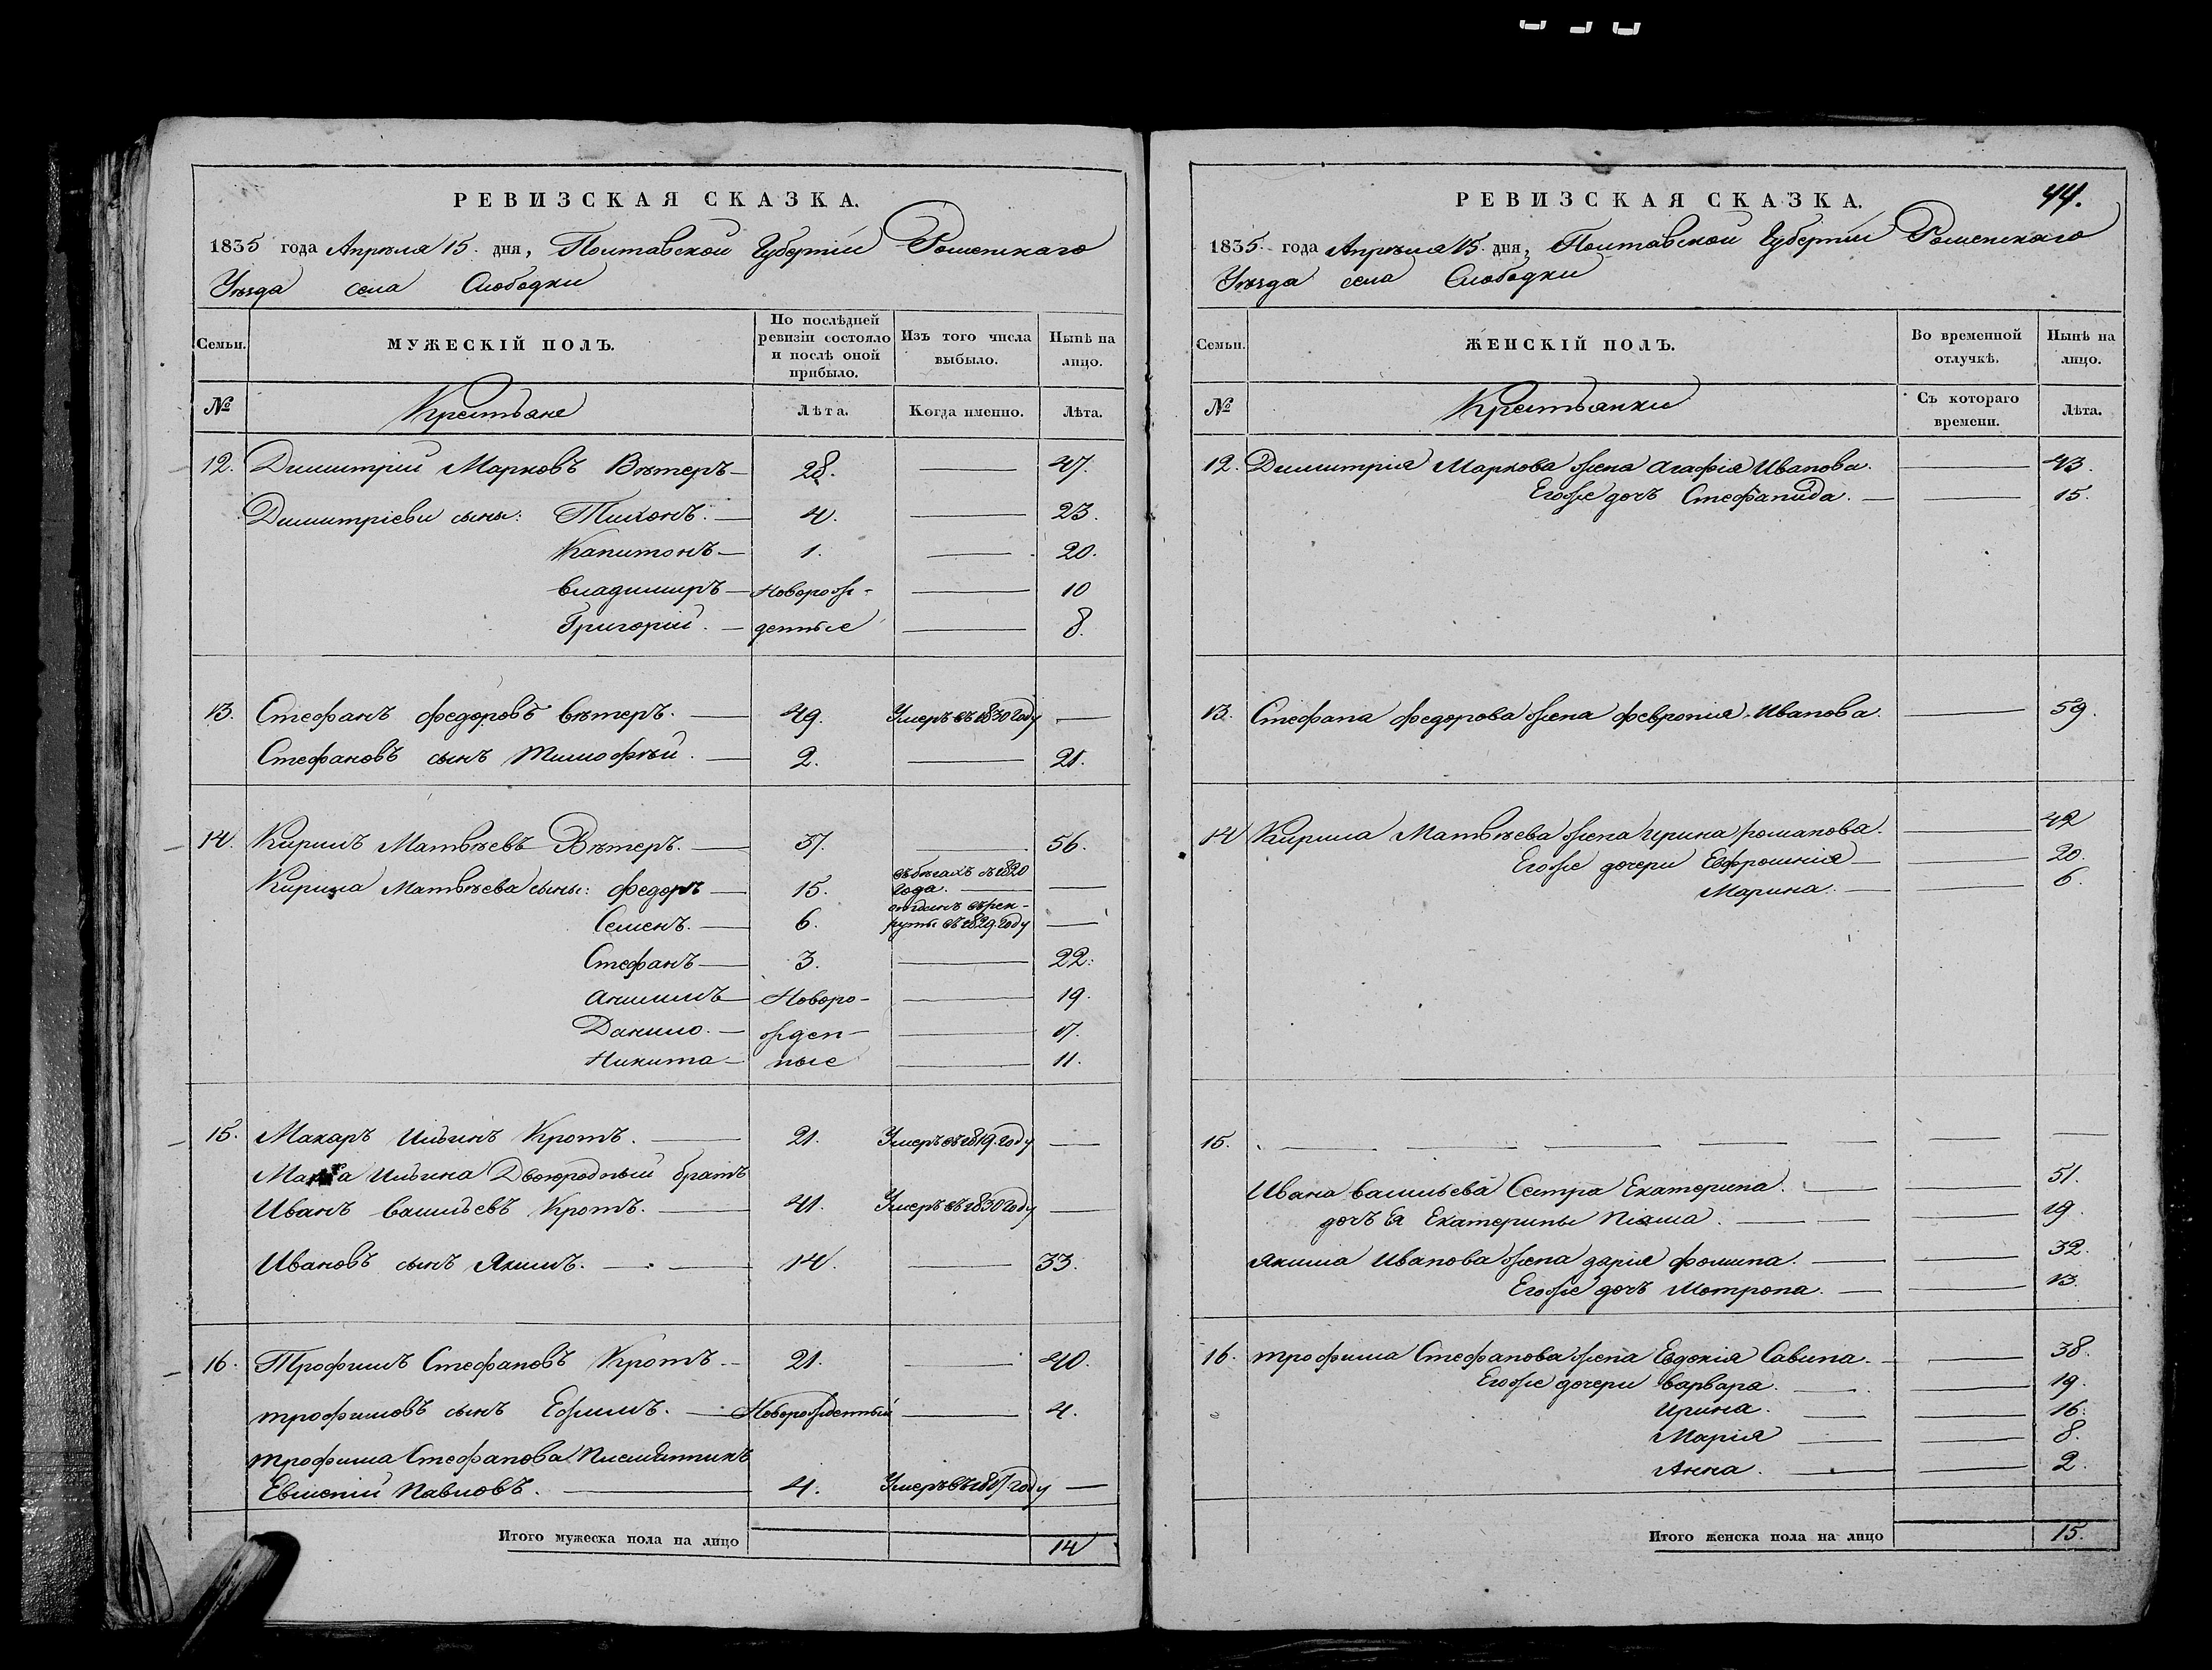 РЕВИЗСКАЯ СКАЗКА.
1835 года Апрѣля 15. дня, Полтавской Губерніи Роменскаго
Уѣзда села Слободки
Семьи. МУЖЕСКІЙ ПОЛЪ. По послѣдней ревизіи состояло и послѣ оной прибыло. Изъ того числа выбыло. Нынѣ на лицо.
№ Крестьяне Лѣта. Когда именно. Лѣта.
12. Димитрій Марковъ Вѣтеръ 28. 47.
Димитріеви сыны: Тихонъ. 4. 23.
Капитонъ 1. 20.
Владимиръ Доворож- 10
Григорій. денные 8.
13. Стефанъ Федоровъ Вѣтеръ. 49. Умеръ въ 1830 году
Стефановъ сынъ Тимофѣй. 2. 21.
14. Кирилъ Матвѣевъ Вѣтеръ. 37. 56.
Кирила Матвѣева сыны: Федоръ 15. въ бѣгахъ съ 1820 года.
Семенъ. 6. отданъ в рек- руты въ 1829. году
Стефанъ 3. 22.
Акимъ Новоро- 19.
Данило. жден- 17.
Никита ные 11.
15. Макаръ Ильинъ Кротъ. 21. Умеръ въ 1819. году
Ильина Двоюродный братъ
Иванъ Васильевъ Кротъ. 41. Умеръ въ 1830 году
Ивановъ сынъ Якимъ. 14. 33.
16. Трофимъ Стефановъ Кротъ. 21. 40.
Трофимовъ сынъ Ефимъ. Новорожденный 4.
Трофима Стефанова Племянникъ
Евменій Павловъ. 4. Умеръ въ году
Итого мужеска пола на лицо 14
РЕВИЗСКАЯ СКАЗКА. 44.
1835. года Апрѣля 15. дня, Полтавской Губерніи Роменскаго
Уѣзда села Слободки
Семьи. ЖЕНСКІЙ ПОЛЪ. Во временной отлучкѣ. Нынѣ на лицо.
№ Крестьянки Съ котораго времени. Лѣта.
12. Димитрія Маркова жена Агафія Иванова. 43.
Егоже дочь Стефанида. 15.
13. Стефана Федорова жена Февронія Иванова. 59.
14 Кирила Матвѣева жена Ирина Романова. 42
Егоже дочери Евфросинія 20.
Марина. 6.
15.
Ивана Васильева Сестра Екатерина. 51.
дочь Ея Екатерины 19.
Якима Иванова жена Дарія Фомина. 32.
Егоже дочь Мотрона. 13.
16. Трофима Стефанова жена Евдокія Савина. 38.
Егоже дочери Варвара. 19.
Ирина. 16.
Марія 8.
Анна. 2.
Итого женска пола на лицо 15.